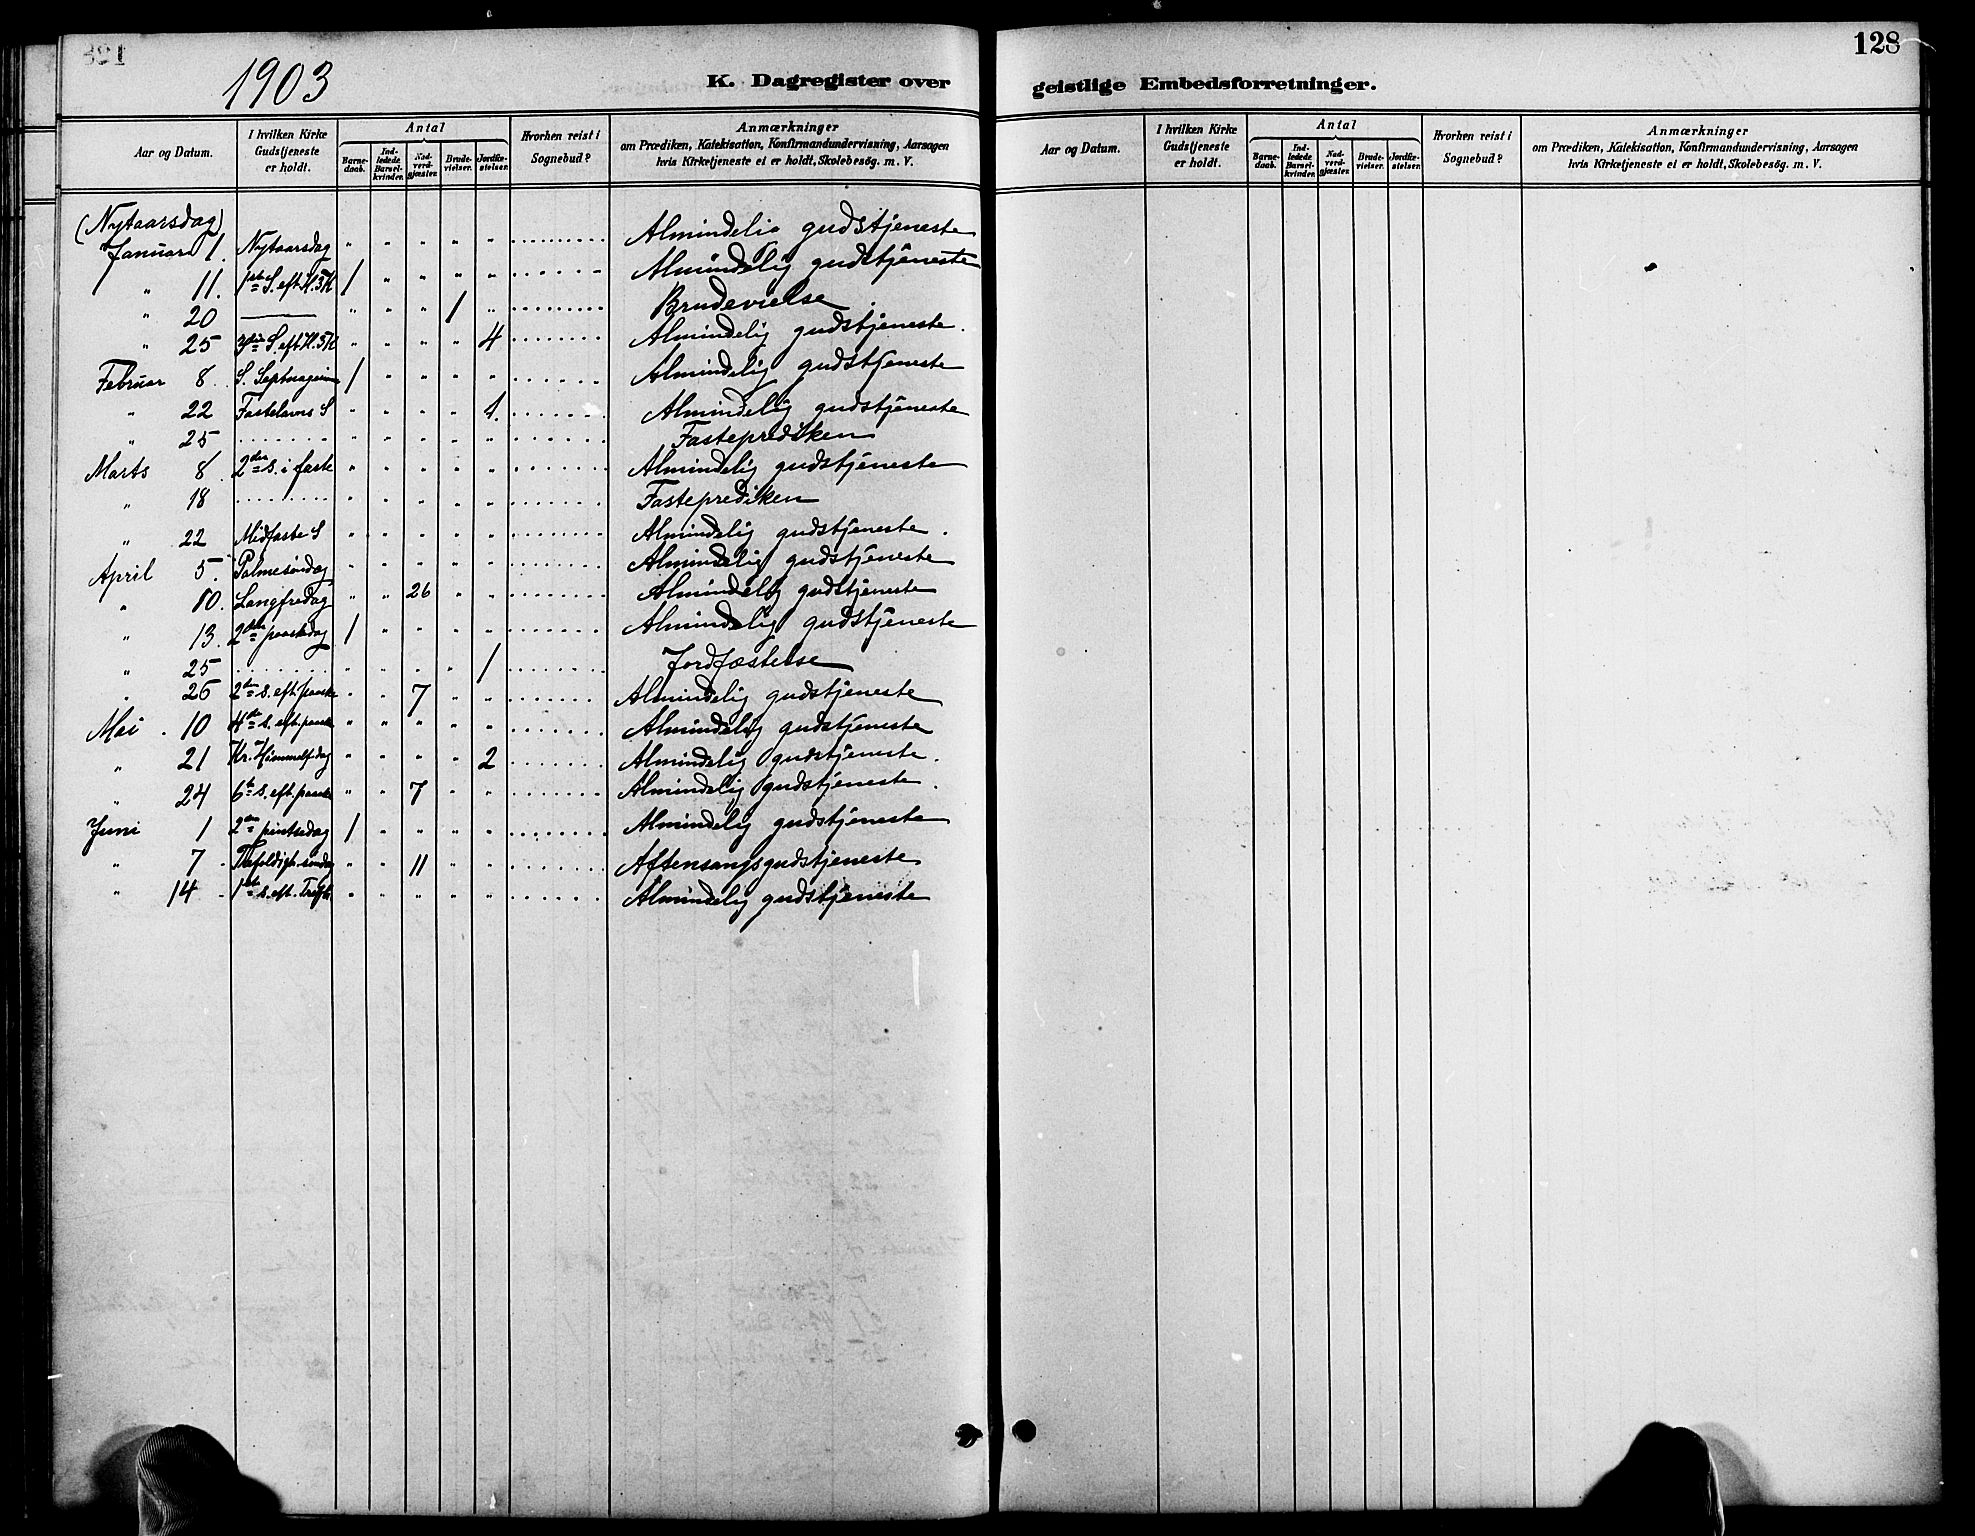 128
1903
K. Dagregister over geistlige Embedsforretninger.
Aar og Datum. | I hvilken Kirke Gudstjeneste er holdt. | Antal | Barnedaab. | Indledede Barselkvinder. | Nadverdgjæster. | Brudevielser. | Jordfæstelser. | Hvorhen reist i Sognebud? | Anmærkninger om Prædiken, Katekisation, Konfirmandundervisning, Aarsagen hvis Kirketjeneste ei er holdt, Skolebesøg. m. V.
(Nytaarsdag)
Januar 1. Nytaarsdag " " " " " Almindelig gudstjeneste
" 11. 1ste S. eft. H.3K 1 " " " " Almindelig gudstjeneste
" 20 — " " " 1 " Brudevielse
" 25 3die S. eft. H.3K " " " " 4 Almindelig gudstjeneste.
Februar 8. S. Septuagesima 1 " " " " Almindelig gudstjeneste
" 22 Fastelavns S " " " " 1. Almindelig gudstjeneste
" 25 " " " " " Fasteprediken
Marts 8. 2den S. i faste " " " " " Almindelig gudstjeneste
" 18 " " " " " Fasteprediken
" 22 Midfaste S " " " " " Almindelig gudstjeneste.
April 5. Palmesøndag " " " " " Almindelig gudstjeneste
" 10. Langfredag " " 26 " " Almindelig gudstjeneste
" 13. 2den paaskedag 1 " " " " Almindelig gudstjeneste
" 25 " " " " 1 Jordfæstelse
" 26 2den s. eft. paaske " " 7 " " Almindelig gudstjeneste
Mai . 10 4de s. eft. paaske " " " " " Almindelig gudstjeneste
" 21 Kr. Himmelf.dag " " " " 2 Almindelig gudstjeneste.
" 24 6te s. eft. paaske " " 7 " " Almindelig gudstjeneste.
Juni 1 2den pintsedag 1 " " " " Almindelig gudstjeneste
" 7 . Trefoldigh. søndag " " 11 " " Aftensangsgudstjeneste
" 14 . 1ste s. eft. Trefh. " " " " " Almindelig gudstjeneste
Aar og Datum. | I hvilken Kirke Gudstjeneste er holdt. | Antal | Barnedaab. | Indledede Barselkvinder. | Nadverdgjæster. | Brudevielser. | Jordfæstelser. | Hvorhen reist i Sognebud? | Anmærkninger om Prædiken, Katekisation, Konfirmandundervisning, Aarsagen hvis Kirketjeneste ei er holdt, Skolebesøg. m. V.